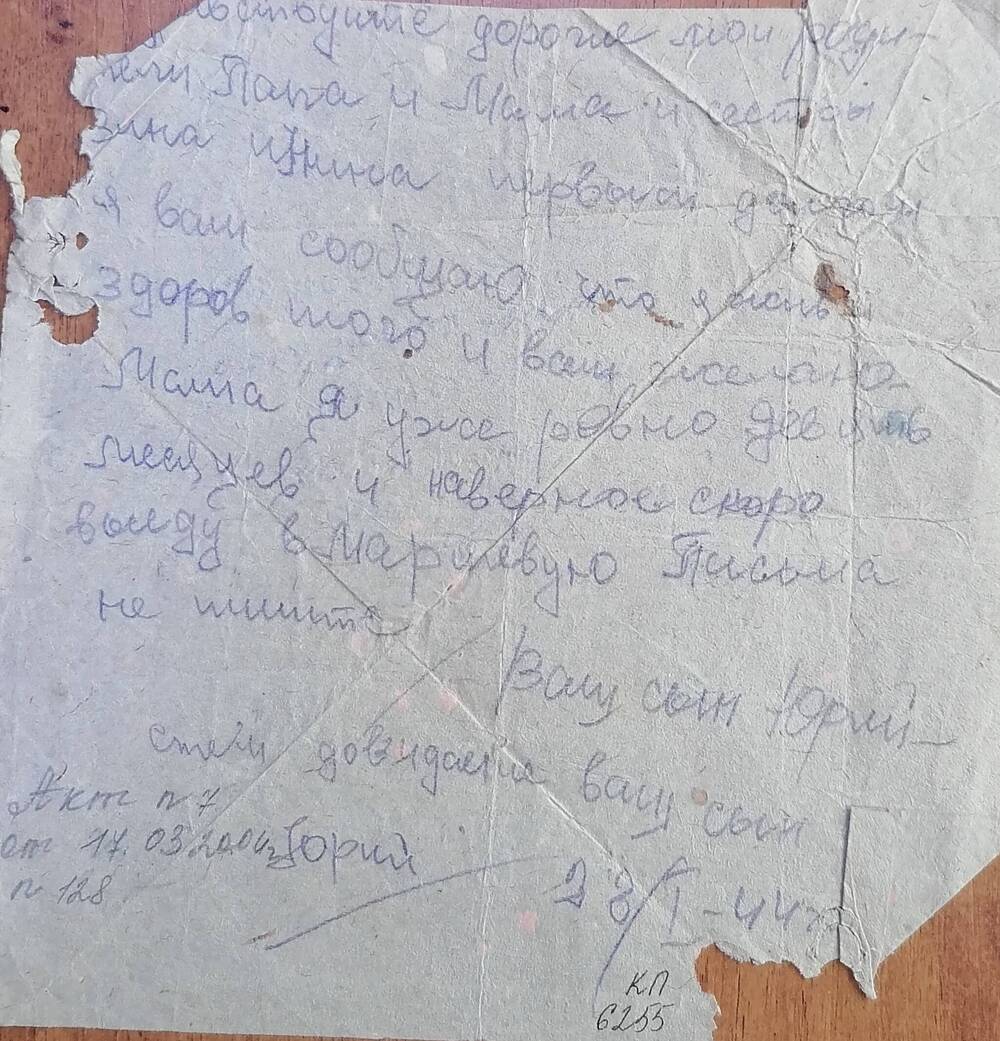 дорогие мои роди-
тели Папа и Мама и сестры
Зина и Нина первый
я вам сообщаю что я жив и
здоров того и вам желаю
Мама я уже ровно девять
месяцев и наверное скоро
выеду в Маршевую Письма
не пишите
Ваш сын Юрий
стем довидания ваш сын
Юрий
23/I-44г
Акт п 7
от 17.03.2004г
п 128
КП
6255